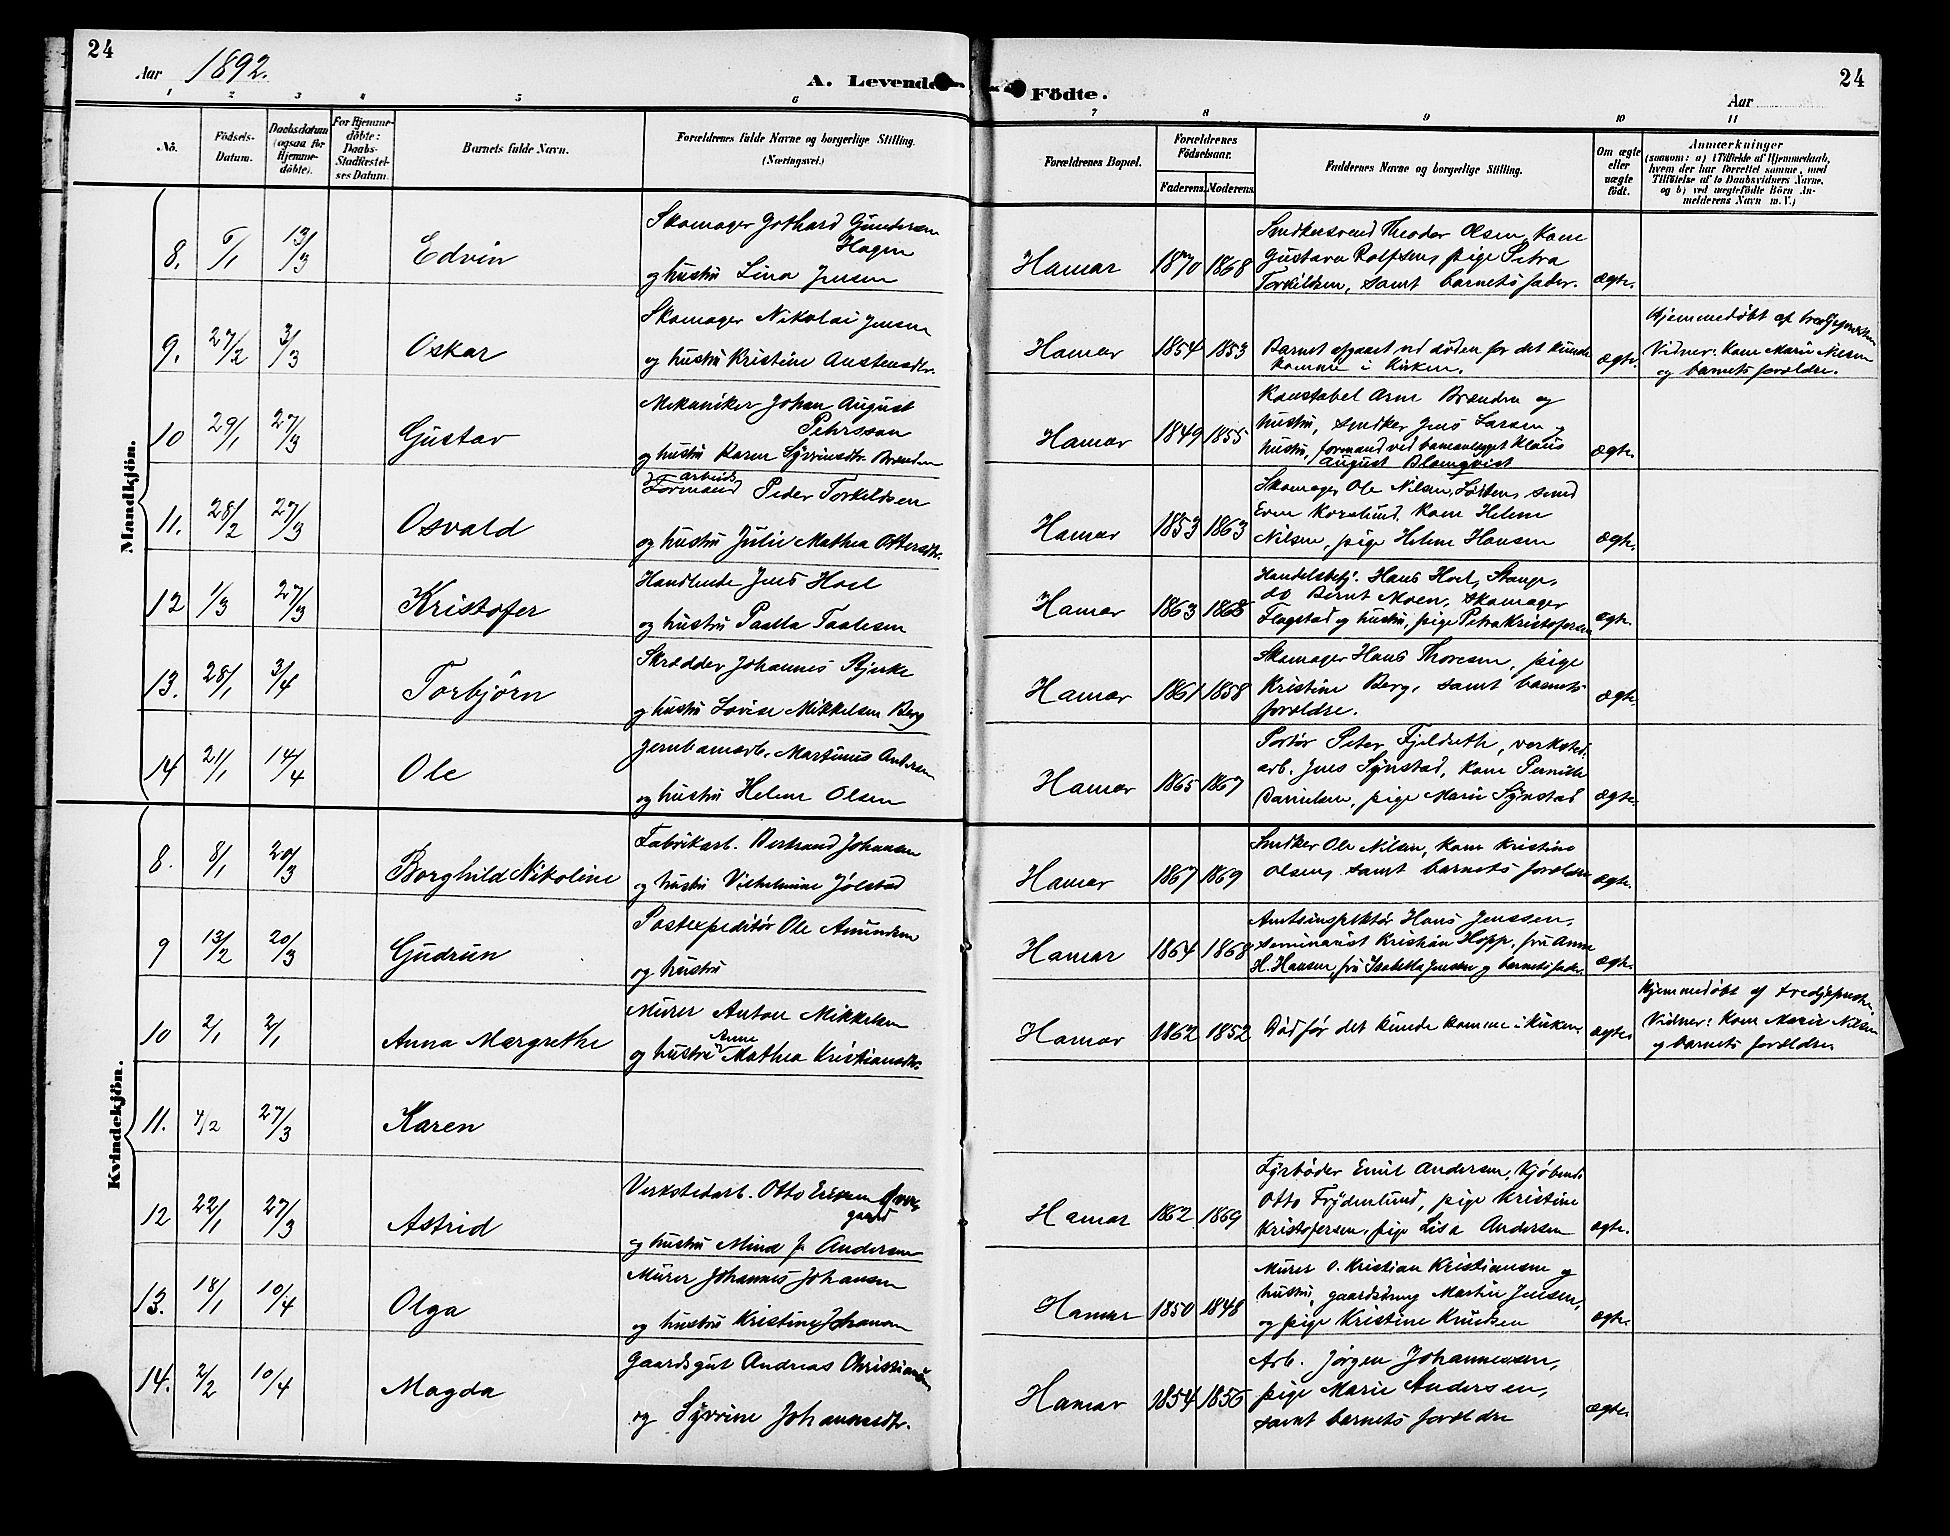 24
Aar 1892.
A. Levende
Födte.
24
Aar
1 2 3 4 5 6 7 8 9 10 11
No.
Födsels-
Datum.
Daabsdatum
(ogsaa for
Hjemme-
döbte).
For Hjemme-
döbte:
Daabs-
Stadfæstel-
ses Datum.
Barnets fulde Navn.
Forældrenes fulde Navne og borgerlige Stilling.
(Næringsvei.)
Forældrenes Bopæl.
Forældrenes
Födselsaar.
Faderens. Moderens.
Faddernes Navne og borgerlige Stilling.
Om ægte
eller
uægte
födt.
Anmærkninger
(saasom: a) i Tilfælde af Hjemmedaab,
hvem der har forrettet samme, med
Tilföielse af to Daabsvidners Navne,
og b) ved uegtefödte Börn An-
melderens Navn m.V.)
Mandkjön.
8. 6/1 13/3 Edvin
Skomager Gothard Gundersen
Hagen
og hustru Lina Jensen
Hamar 1870 1868
Snedkersvend Theodor Olsen, kone
Gustava Rolfsen, pige Petra
Torkildsen, samt barnets fader.
ægte.
9. 27/2 3/3 Oskar
Skomager Nikolai Jensen
og hustru Kristine Austensdtr.
Hamar 1854 1853
Barnet afgaaet ved döden før det kunde
komme i kirken.
ægte.
Hjemmedøbt af
Vidner: kone Marie Nilsen
og barnets forældre.
10 29/1 27/3 Gustav
Mekaniker Johan August
Pehrsson
og hustru Karen Syverinsdtr. Brænden
Hamar 1849 1855
Konstabel Arne Brænden og
hustru, snedker Jens Larsen og
hustru, formand ved baneanlægget Klaus
August Blomqvist
ægte.
11. 28/2 27/3 Osvald
arbeids
Formand Peder Torkildsen
og hustru Julie Mathea Ottersdtr.
Hamar 1853 1863
Skomager Ole Nilsen, Løiten, smed
Even Korslund, kone Helene
Nilsen, pige Helene Hansen
ægte.
12 1/3 27/3 Kristofer
Handlende Jens Hoel
og hustru Paalla Paalesen
Hamar 1863 1868
Handelsbetj. Hans Hoel, Stange,
do Bernt Moen, skomager
Flagstad og hustru, pige Petra Kristofersen
ægte.
13. 28/1 3/4 Torbjörn
Skrædder Johannes Bjerke
og hustru Lovise Mikkelsen Berg
Hamar 1861 1858
Skomager Hans Thoresen, pige
Kristine Berg, samt barnets
forældre.
ægte.
14 21/1 14/4 Ole
Jernbanearb. Martinus Andersen
og hustru Helene Olsen
Hamar 1865 1867
Portør Peter Fjeldseth, verksted.
arb. Jens Synstad, kone Pernille
Danielsen, pige Marie Synstad
ægte.
Kvindekjön.
8. 8/1 20/3 Borghild Nikoline
Fabrikarb. Bertrand Johansen
og hustru Vilhelmine Jølstad
Hamar 1867 1869
Snedker Ole Nilsen, kone Kristine
Olsen, samt barnets forældre
ægte.
9 13/2 20/3 Gudrun
Postexpeditør Ole Amundsen
og hustru
Hamar 1864 1868
Amtsinspektør Hans Jenssen,
seminarist Kristian Hopp, fru Anne
H. Hansen, fru Isabella Jensen og barnets fader.
ægte.
10 2/1 2/1 Anna Margrethe
Murer Anton Mikkelsen
Anne
og hustru Mathea Kristiansdtr.
Hamar 1862 1852
Død før det kunde komme i kirken.
ægte.
Hjemmedøbt af
Vidner: Kone Marie Nilsen
og barnets forældre
11. 4/2 27/3 Karen
12 22/1 27/3 Astrid
Verkstedarb. Otto Eriksen
gaard
og hustru Mina f. Andersen
Hamar 1862 1869
Fyrbøder Emil Andersen, Kjøbmd.
Otto Frydenlund, pige Kristine
Kristofersen, pige Lisa Andersen
ægte.
13. 18/1 10/4 Olga
Murer Johannes Johansen
og hustru Kristine Johansen
Hamar 1850 1848
Murer O. Kristian Kristiansen og
hustru, gaardsdreng Martin Jensen,
og pige Kristine Knudsen
ægte.
14. 2/2 10/4 Magda
Gaardsgut Andreas Christiansen
og Syverine Johannesdtr.
Hamar 1854 1856
Arb. Jörgen Johannessen,
pige Marie Andersen,
samt barnets forældre
ægte.